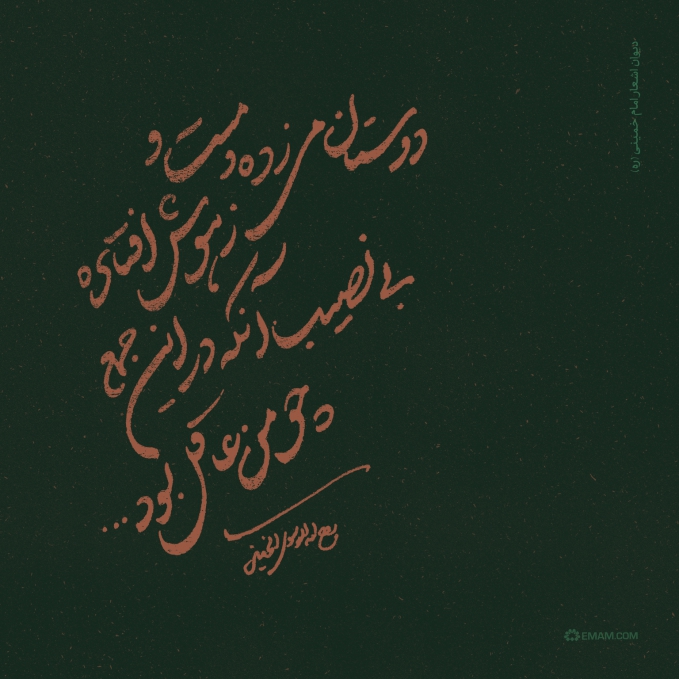 دوستان می زده و مست و
ز هوش افتاده
بی نصیب آنکه در این جمع
چو من عاقل بود...
روح الله الموسوی الخمینی
دیوان اشعار امام خمینی (ره)
EMAM.COM